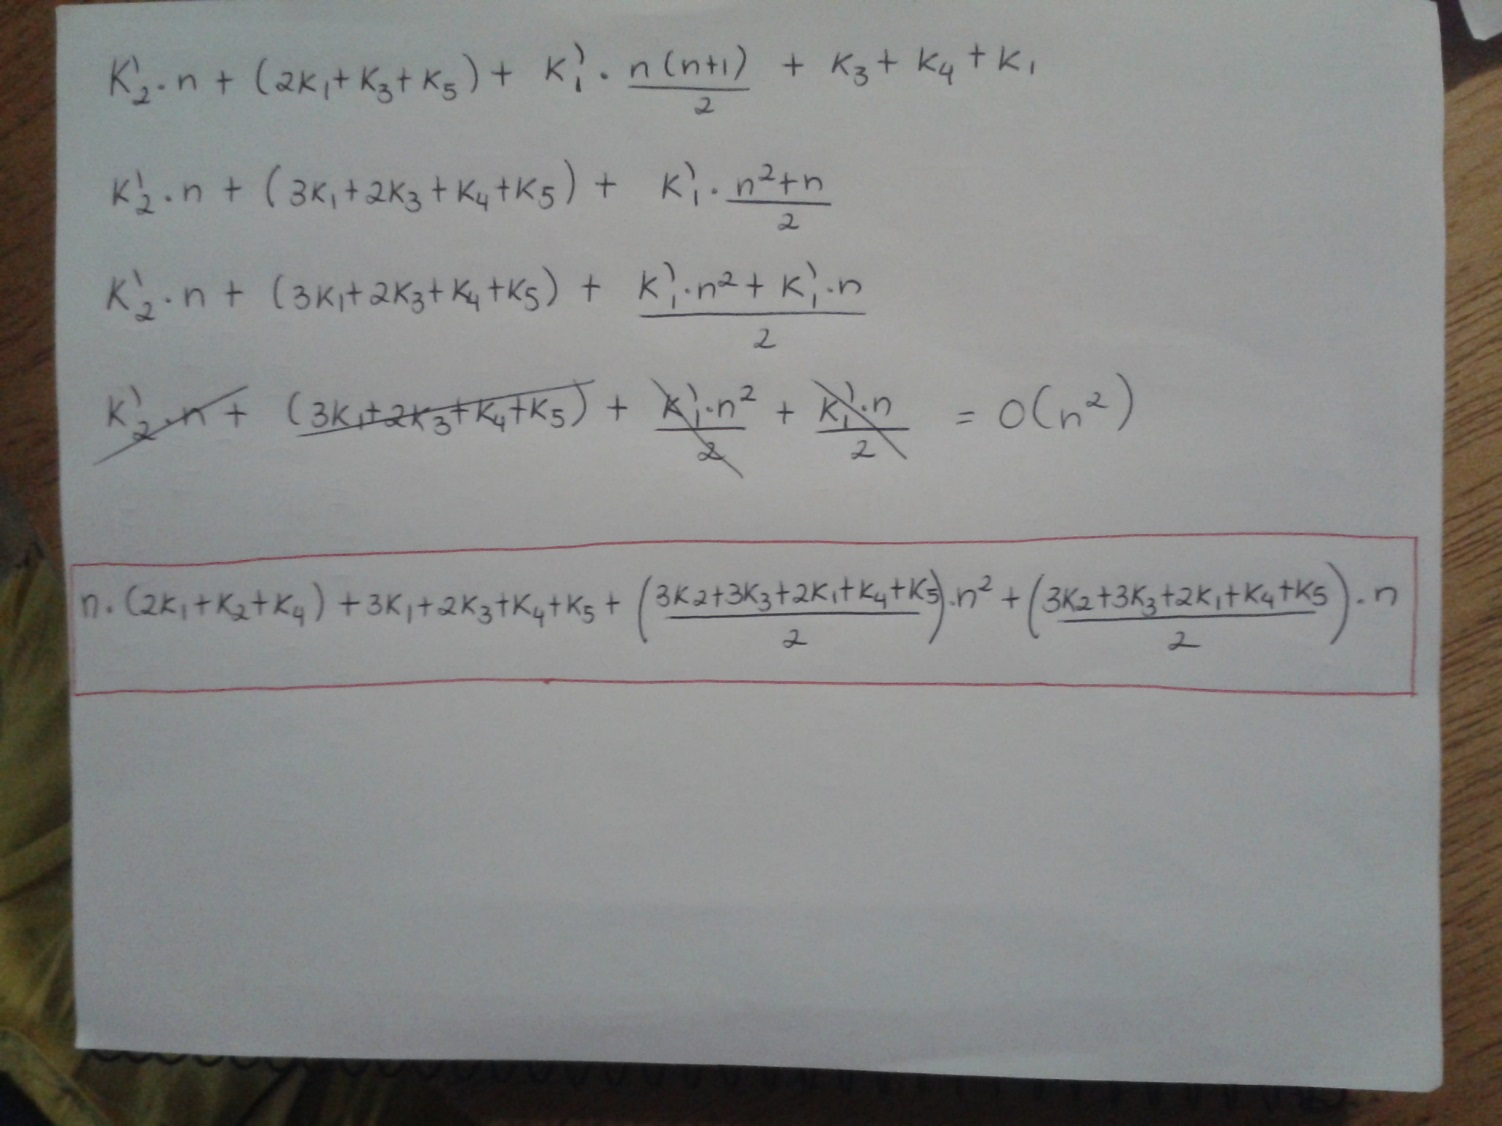 K'₂·n + (2K₁+K₃+K₅) + K'₁ · n(n+1)/2 + K₃+K₄+K₁
K'₂·n + (3K₁+2K₃+K₄+K₅) + K'₁ · n²+n/2
K'₂·n + (3K₁+2K₃+K₄+K₅) + K'₁·n²+K'₁·n/2
K'₂·n + (3K₁+2K₃+K₄+K₅) + K'₁·n²/2 + K'₁·n/2 = O(n²)
n·(2K₁+K₂+K₄)+3K₁+2K₃+K₄+K₅+(3K₂+3K₃+2K₁+K₄+K₅/2)·n²+(3K₂+3K₃+2K₁+K₄+K₅/2)·n